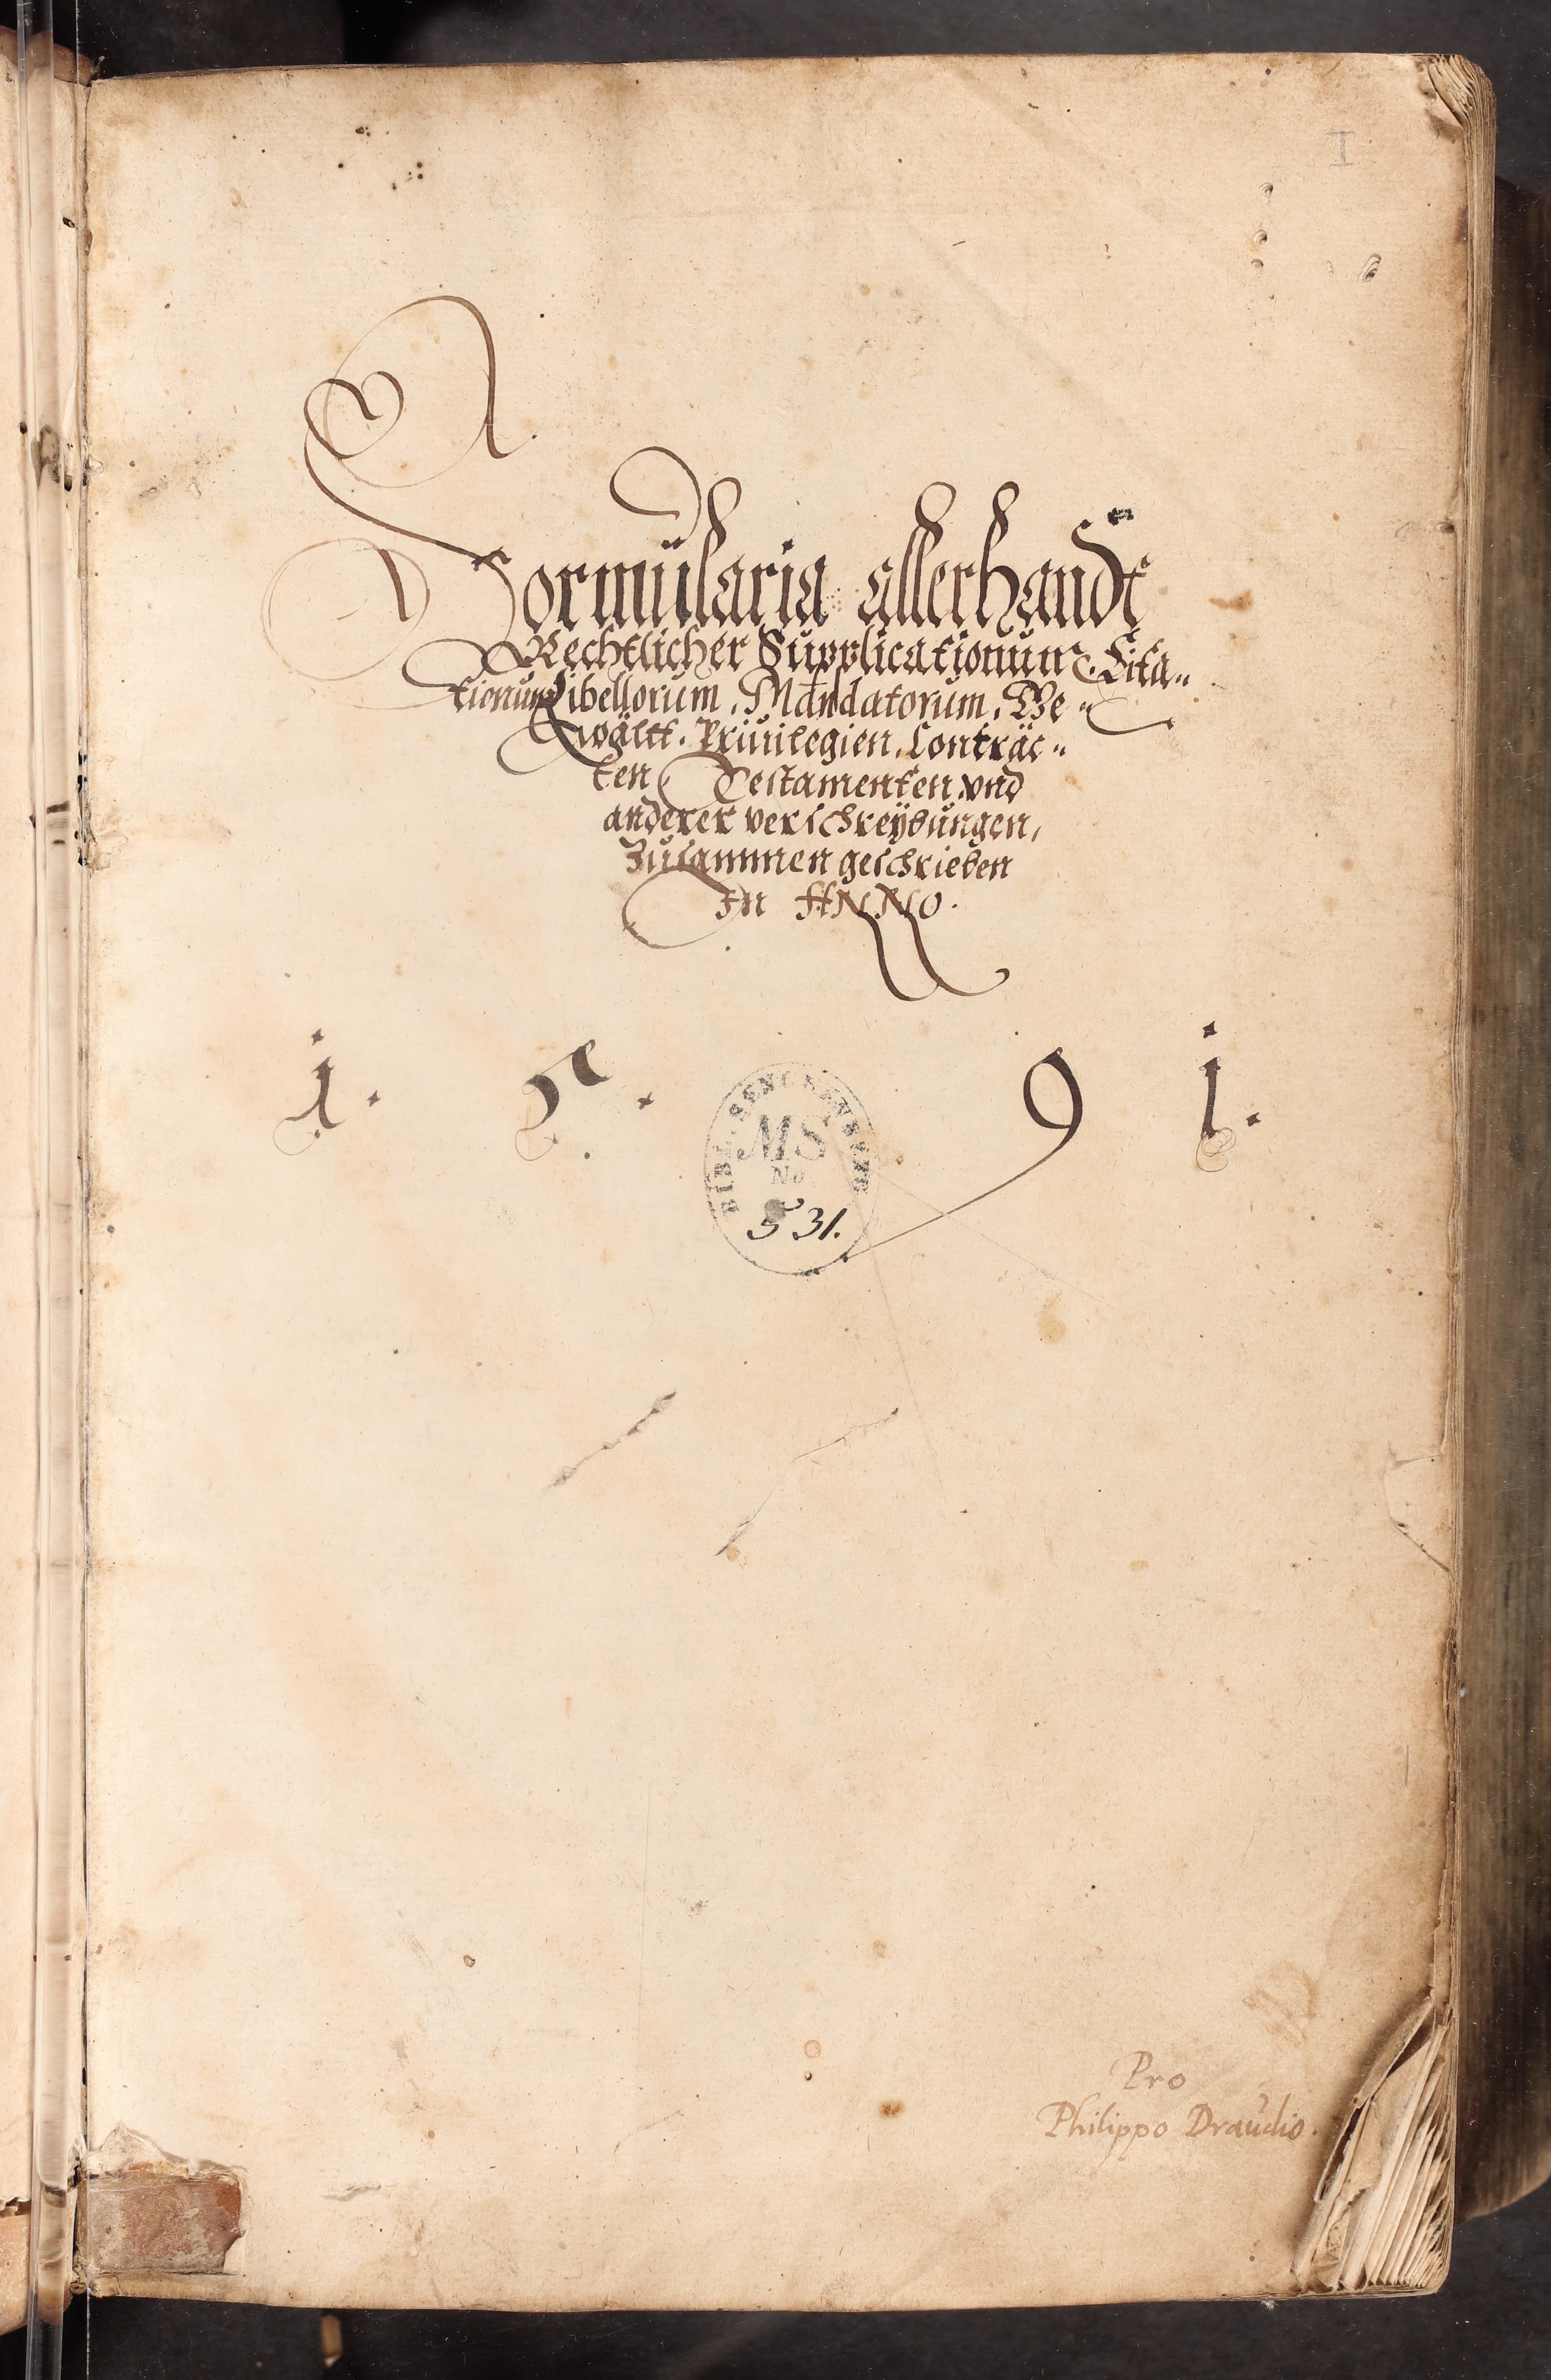 I
Formularia allerhandt
Rechtlicher Supplicationum. Cita„
tionum Libellorum, Mandatorum, Ge„
wältt. Priuilegien. Conträc„
ten Testamenten vnd
anderer verschreÿbungen,
Zusammen geschrieben
In ANNO.
1. 5. 9 1.
BIBL. SENCKENBERG
MS
No
531.
Pro
Philippo Draudio.